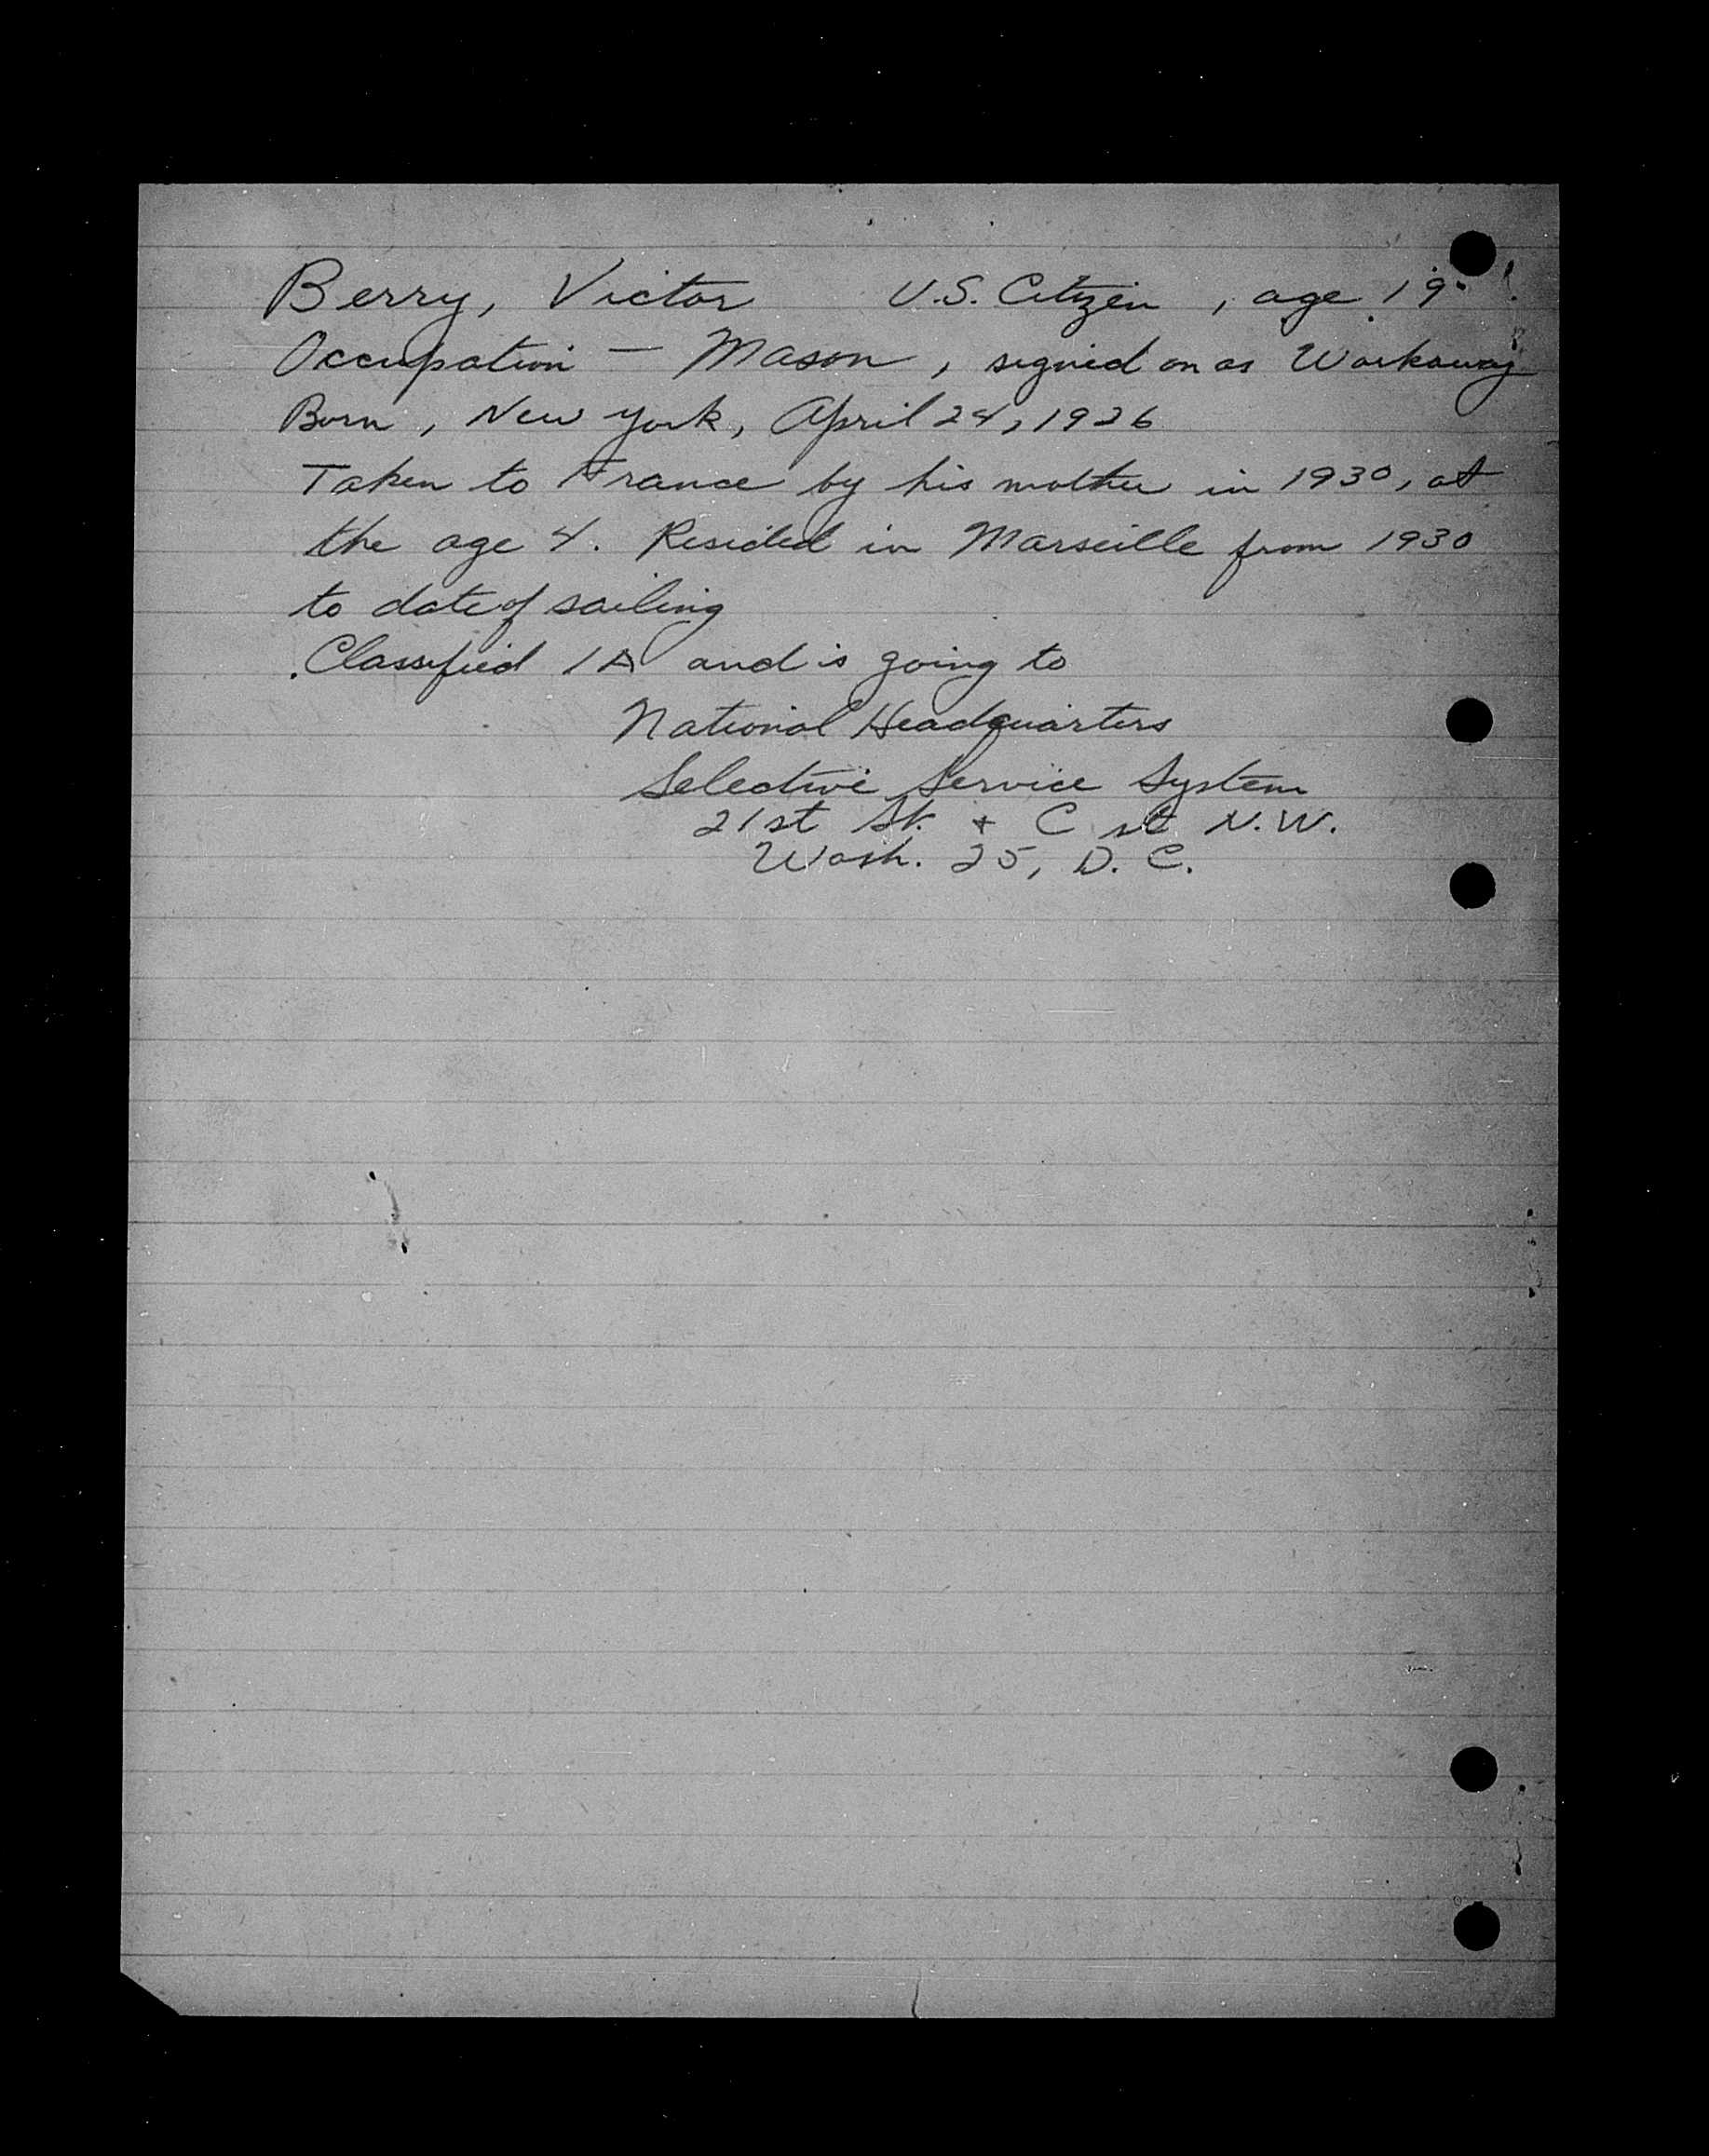 Berry, Victor U.S. Citizen, age 19
Occupation — Mason, signed on as Workaway
Born, New York, April 24, 1926
Taken to France by his mother in 1930, at
the age 4. Resided in Marseille from 1930
to date of sailing
Classified 1A and is going to
National Headquarters
Selective Service System
21st St. + C st N.W.
Wash. 25, D. C.